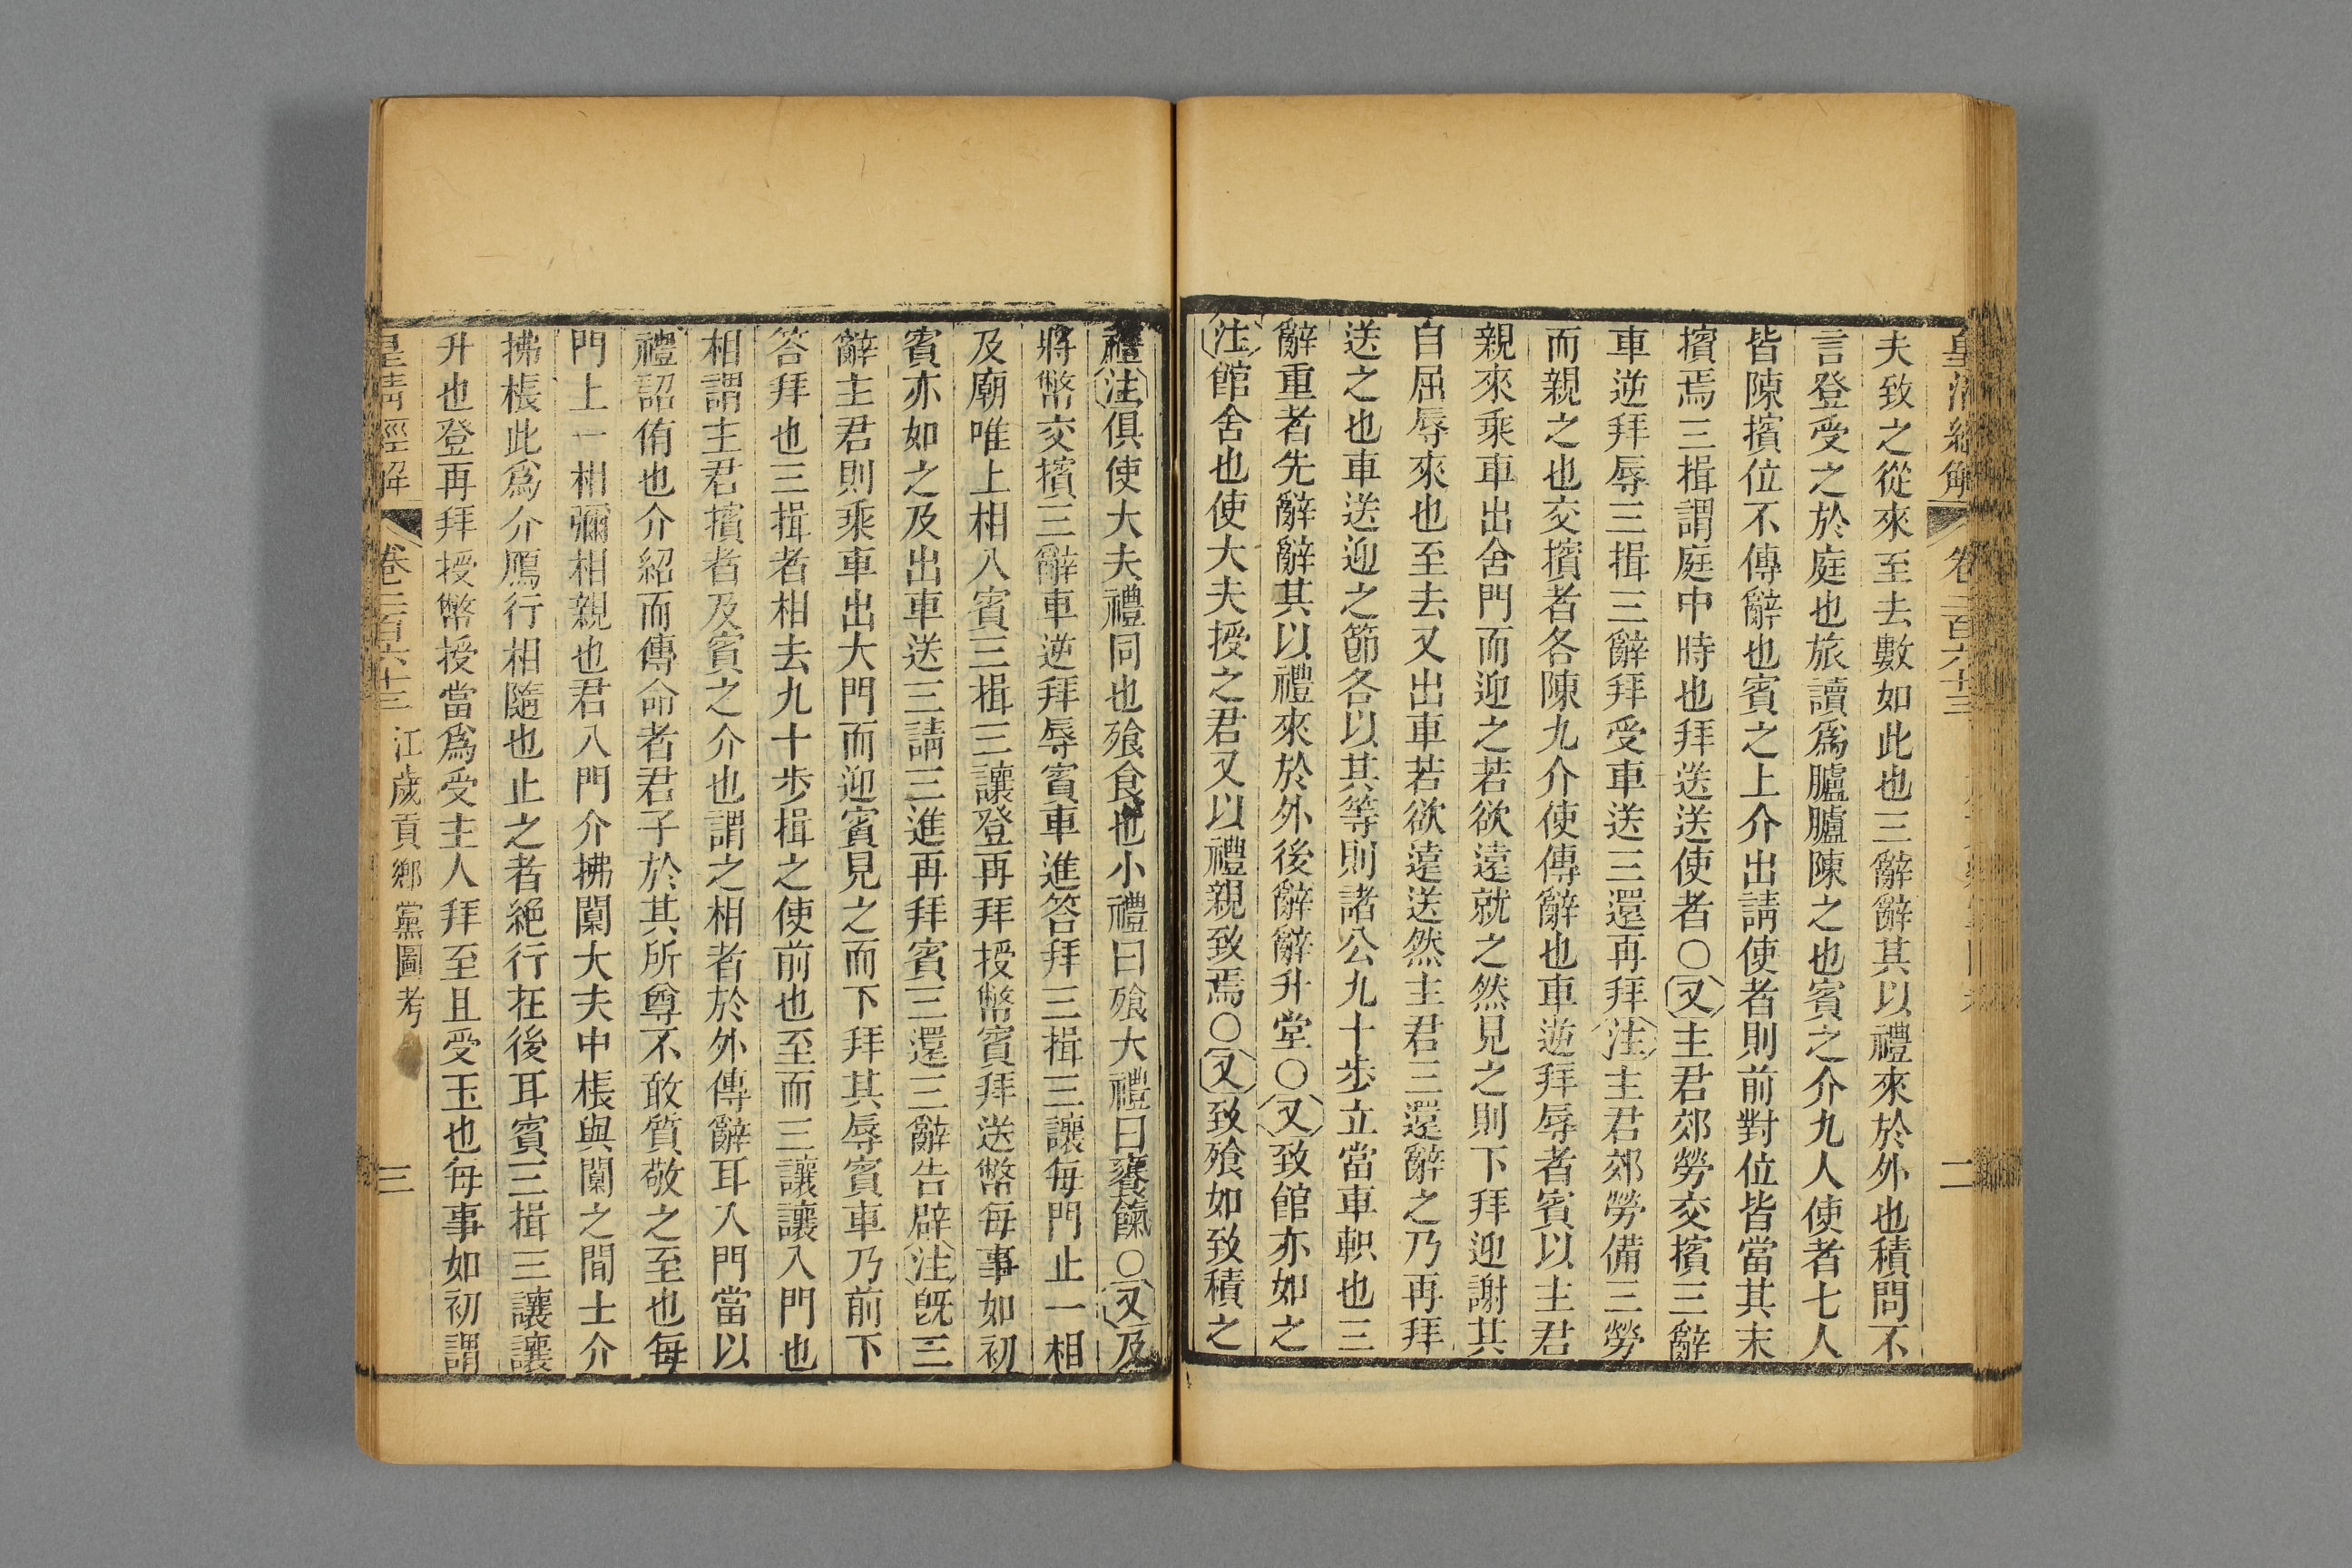 皇清經解 卷二百六十三 二
夫致之從來至去數如此也三辭辭其以禮來於外也積問不
言登受之於庭也旅讀爲臚臚陳之也賓之介九人使者七人
皆陳擯位不傳辭也賓之上介出請使者則前對位皆當其末
擯焉三揖謂庭中時也拜送送使者○又主君郊勞交擯三辭
車逆拜辱三揖三辭拜受車送三還再拜注主君郊勞備三勞
而親之也交擯者各陳九介使傳辭也車逆拜辱者賓以主君
親來乘車出舍門而迎之若欲遠就之然見之則下拜迎謝其
自屈辱來也至去又出車若欲遠送然主君三還辭之乃再拜
送之也車送迎之節各以其等則諸公九十步立當車軹也三
辭重者先辭辭其以禮來於外後辭辭升堂○又致館亦如之
注館舍也使大夫授之君又以禮親致焉○又致飧如致積之
禮注俱使大夫禮同也飧食也小禮曰飧大禮曰饔餼○又及
將幣交擯三辭車逆拜辱賓車進答拜三揖三讓每門止一相
及廟唯上相入賓三揖三讓登再拜授幣賓拜送幣每事如初
賓亦如之及出車送三請三進再拜賓三還三辭告辟注旣三
辭主君則乘車出大門而迎賓見之而下拜其辱賓車乃前下
答拜也三揖者相去九十步揖之使前也至而三讓讓入門也
相謂主君擯者及賓之介也謂之相者於外傳辭耳入門當以
禮詔侑也介紹而傳命者君子於其所尊不敢質敬之至也每
門上一相彌相親也君入門介拂闑大夫中棖與闑之間士介
拂棖此爲介鴈行相隨也止之者絕行在後耳賓三揖三讓讓
升也登再拜授幣授當爲受主人拜至且受玉也每事如初謂
皇清經解 卷二百六十三 江歲貢鄉黨圖考 三